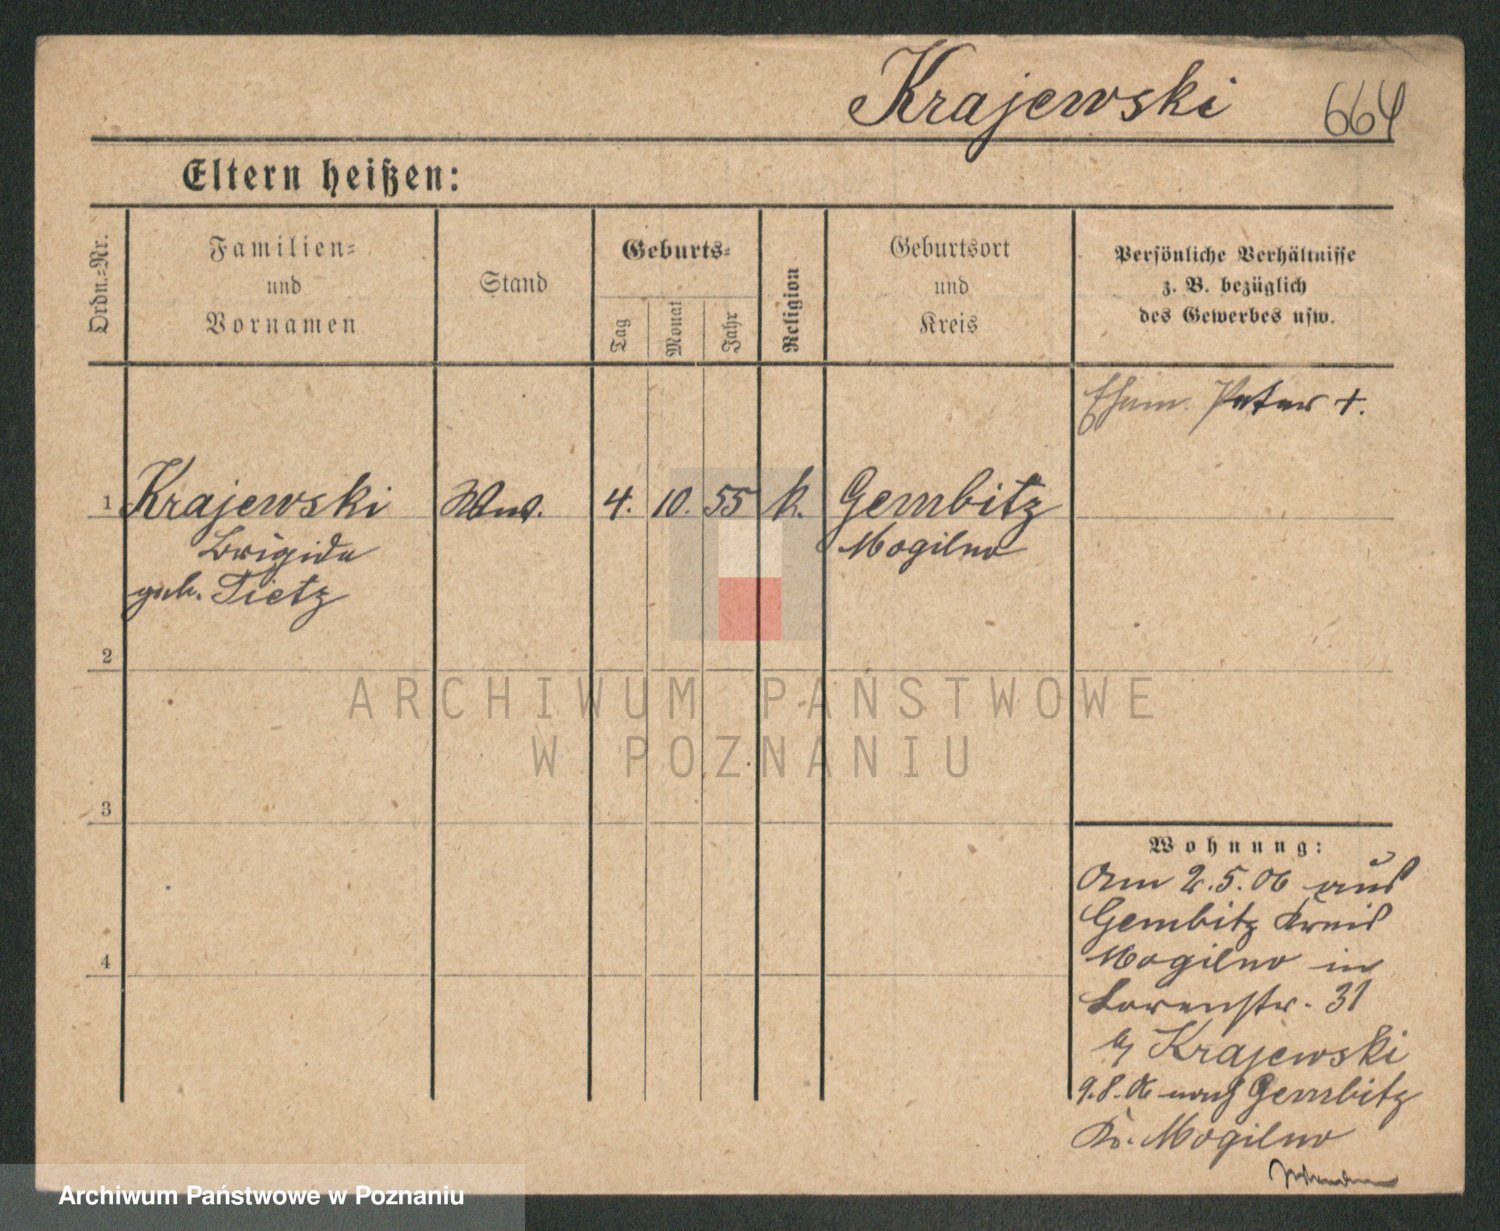 Krajewski 664
Eltern heißen:
Ordn.=Nr.
Familien=
und
Vornamen
Stand
Geburts=
Tag
Monat
Jahr
Religion
Geburtsort
und
Kreis
Persönliche Verhältnisse
z. B. bezüglich
des Gewerbes usw.
Ehem. Peter +.
1 Krajewski Wwe. 4. 10. 55 k. Gembitz
Brigida Mogilno
geb. Tietz
2
ARCHIWUM PAŃSTWOWE
W POZNANIU
3
Wohnung:
Am 2.5.06 aus
Gembitz Kreis
Mogilno in
4
31
Krajewski
9.8.06 nach Gembitz
Kr. Mogilno
Archiwum Państwowe w Poznaniu